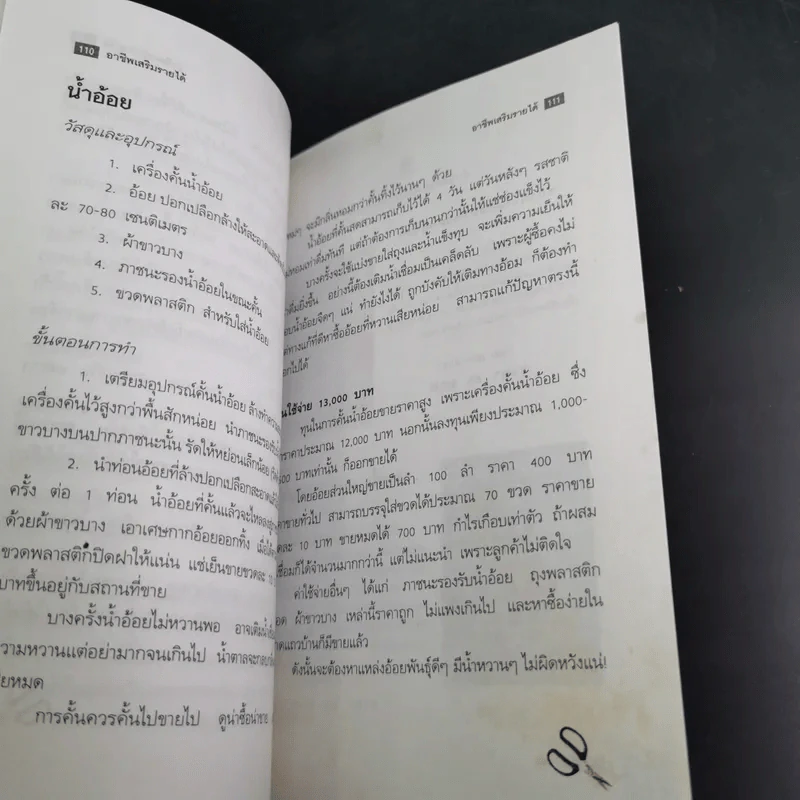 110 อาชีพเสริมรายได้
น้ำอ้อย
วัสดุและอุปกรณ์
1. เครื่องคั้นน้ำอ้อย
2. อ้อย ปอกเปลือกล้างให้สะอาด
ละ 70-80 เซนติเมตร
3. ผ้าขาวบาง
4. ภาชนะรองน้ำอ้อยในขณะคั้น
5. ขวดพลาสติก สำหรับใส่น้ำอ้อย
ขั้นตอนการทำ
1. เตรียมอุปกรณ์คั้นน้ำอ้อย ล้างทำความ
เครื่องคั้นไว้สูงกว่าพื้นสักหน่อย นำภาชนะรองรับน้ำ
ขาวบางบนปากภาชนะนั้น รัดให้หย่อนเล็กน้อย
2. นำท่อนอ้อยที่ล้างปอกเปลือกสะอาดแล้ว
ครั้ง ต่อ 1 ท่อน น้ำอ้อยที่คั้นแล้วจะไหลลง
ด้วยผ้าขาวบาง เอาเศษกากอ้อยออกทิ้ง
ขวดพลาสติกปิดฝาให้แน่น แช่เย็นขายขวดละ 10
บาทขึ้นอยู่กับสถานที่ขาย
บางครั้งน้ำอ้อยไม่หวานพอ อาจเติมน้ำ
ความหวานแต่อย่ามากจนเกินไป น้ำตาลจะกลบ
ไปหมด
การคั้นควรคั้นไปขายไป ดูน่าซื้อน่าขาย
อาชีพเสริมรายได้ 111
จะมีกลิ่นหอมกว่าคั้นทิ้งไว้นานๆ ด้วย
น้ำอ้อยที่คั้นสดสามารถเก็บไว้ได้ 4 วัน แต่วันหลังๆ รสชาติ
ไม่หอมเท่าดื่มทันที แต่ถ้าต้องการเก็บนานกว่านั้นให้แช่ช่องแข็งไว้
บางครั้งจะใช้แบ่งขายใส่ถุงและน้ำแข็งทุบ จะเพิ่มความเย็นให้
น่าดื่มยิ่งขึ้น อย่างนี้ต้องเติมน้ำเชื่อมเป็นเคล็ดลับ เพราะผู้ซื้อคงไม่
ชอบน้ำอ้อยจืดๆ แน่ ทำยังไงได้ ถูกบังคับให้เติมทางอ้อม ก็ต้องทำ
แต่ทางแก้ที่ดีหาซื้ออ้อยที่หวานเสียหน่อย สามารถแก้ปัญหาตรงนี้
ออกไปได้
เงินใช้จ่าย 13,000 บาท
ทุนในการคั้นน้ำอ้อยขายราคาสูง เพราะเครื่องคั้นน้ำอ้อย ซึ่ง
ราคาประมาณ 12,000 บาท นอกนั้นลงทุนเพียงประมาณ 1,000-
500 บาทเท่านั้น ก็ออกขายได้
โดยอ้อยส่วนใหญ่ขายเป็นลำ 100 ลำ ราคา 400 บาท
ราคาขายทั่วไป สามารถบรรจุใส่ขวดได้ประมาณ 70 ขวด ราคาขาย
ขวดละ 10 บาท ขายหมดได้ 700 บาท กำไรเกือบเท่าตัว ถ้าผสม
น้ำเชื่อมก็ได้จำนวนมากกว่านี้ แต่ไม่แนะนำ เพราะลูกค้าไม่ติดใจ
ค่าใช้จ่ายอื่นๆ ได้แก่ ภาชนะรองรับน้ำอ้อย ถุงพลาสติก
ขวด ผ้าขาวบาง เหล่านี้ราคาถูก ไม่แพงเกินไป และหาซื้อง่ายใน
ตลาดแถวบ้านก็มีขายแล้ว
ดังนั้นจะต้องหาแหล่งอ้อยพันธุ์ดีๆ มีน้ำหวานๆ ไม่ผิดหวังแน่!